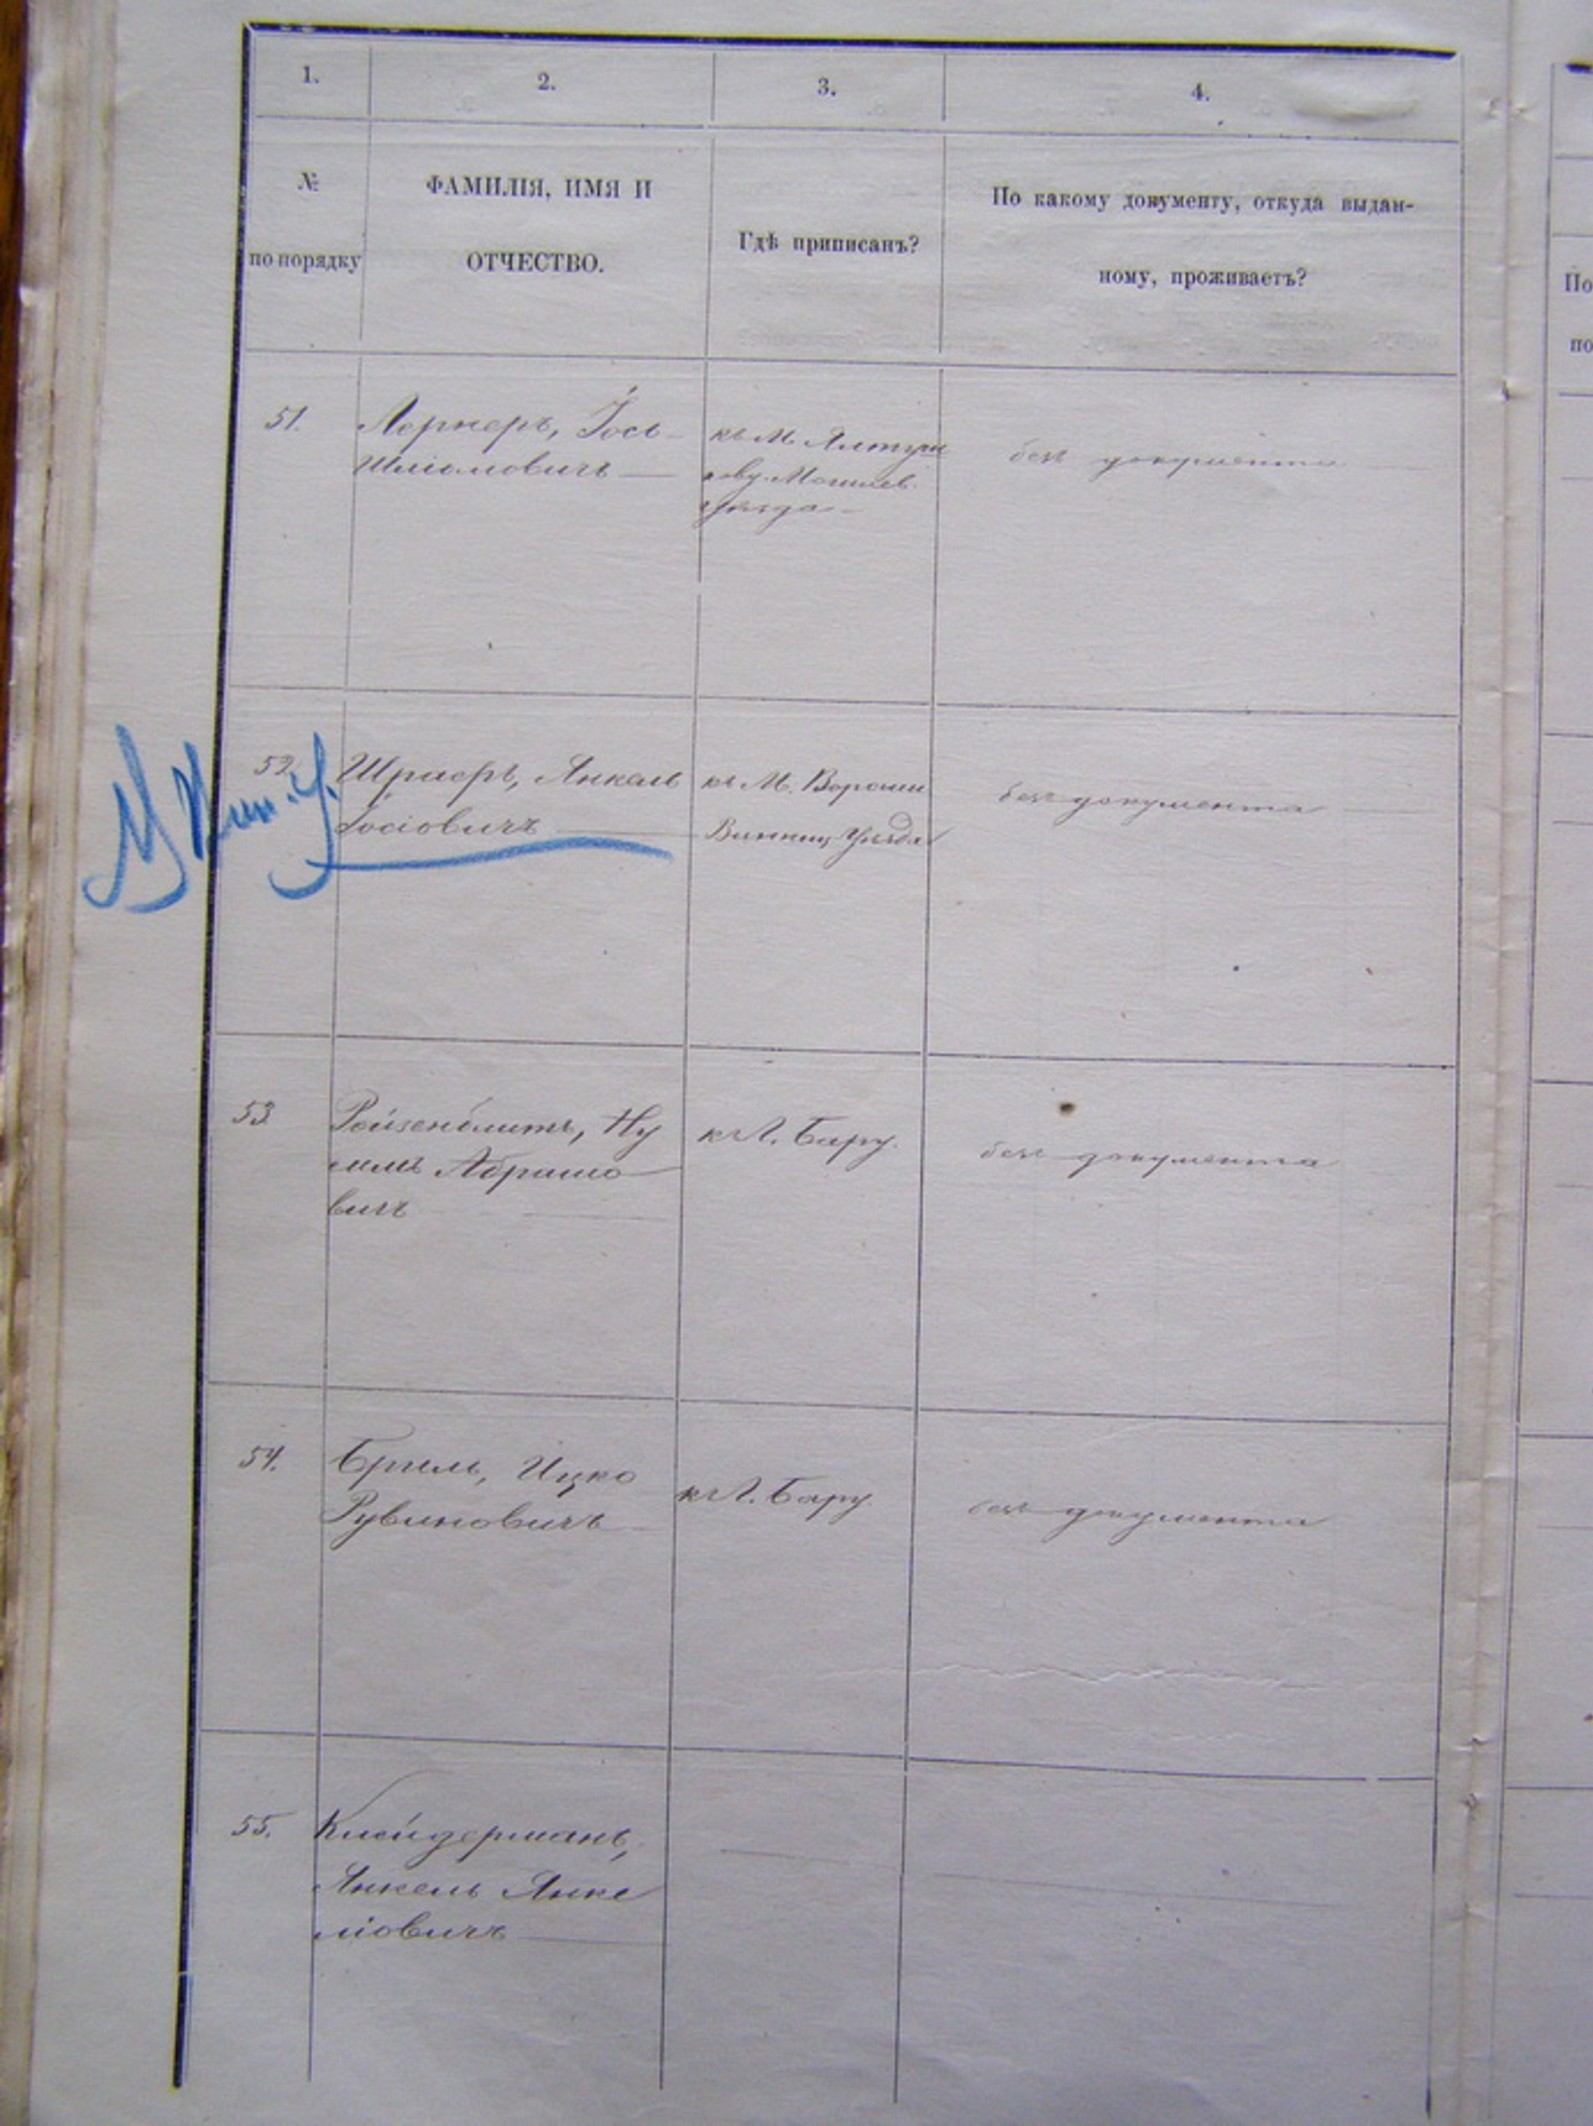 1.
2.
3.
4.
№
по порядку
ФАМИЛІЯ, ИМЯ И
ОТЧЕСТВО.
Гдѣ приписанъ?
По какому документу, откуда выдан-
ному, проживаетъ?
51.
Лернеръ, Іось
Шліомовичъ
къ М. Ялтуш
кову Могилев.
уѣзда
безъ документа
52.
Шраеръ, Янкель
Іосіовичъ
къ М. Ворошил
Винниц. Уѣзда
безъ документа
53
Ройзенблитъ, Ну
химъ Абрамо
вичъ
къ Г. Бару.
безъ документа
54.
Бриль, Ицко
Рувиновичъ
къ Г. Бару.
безъ документа
55.
Клейдерманъ,
Янкель Янке
ліовичъ
По
по